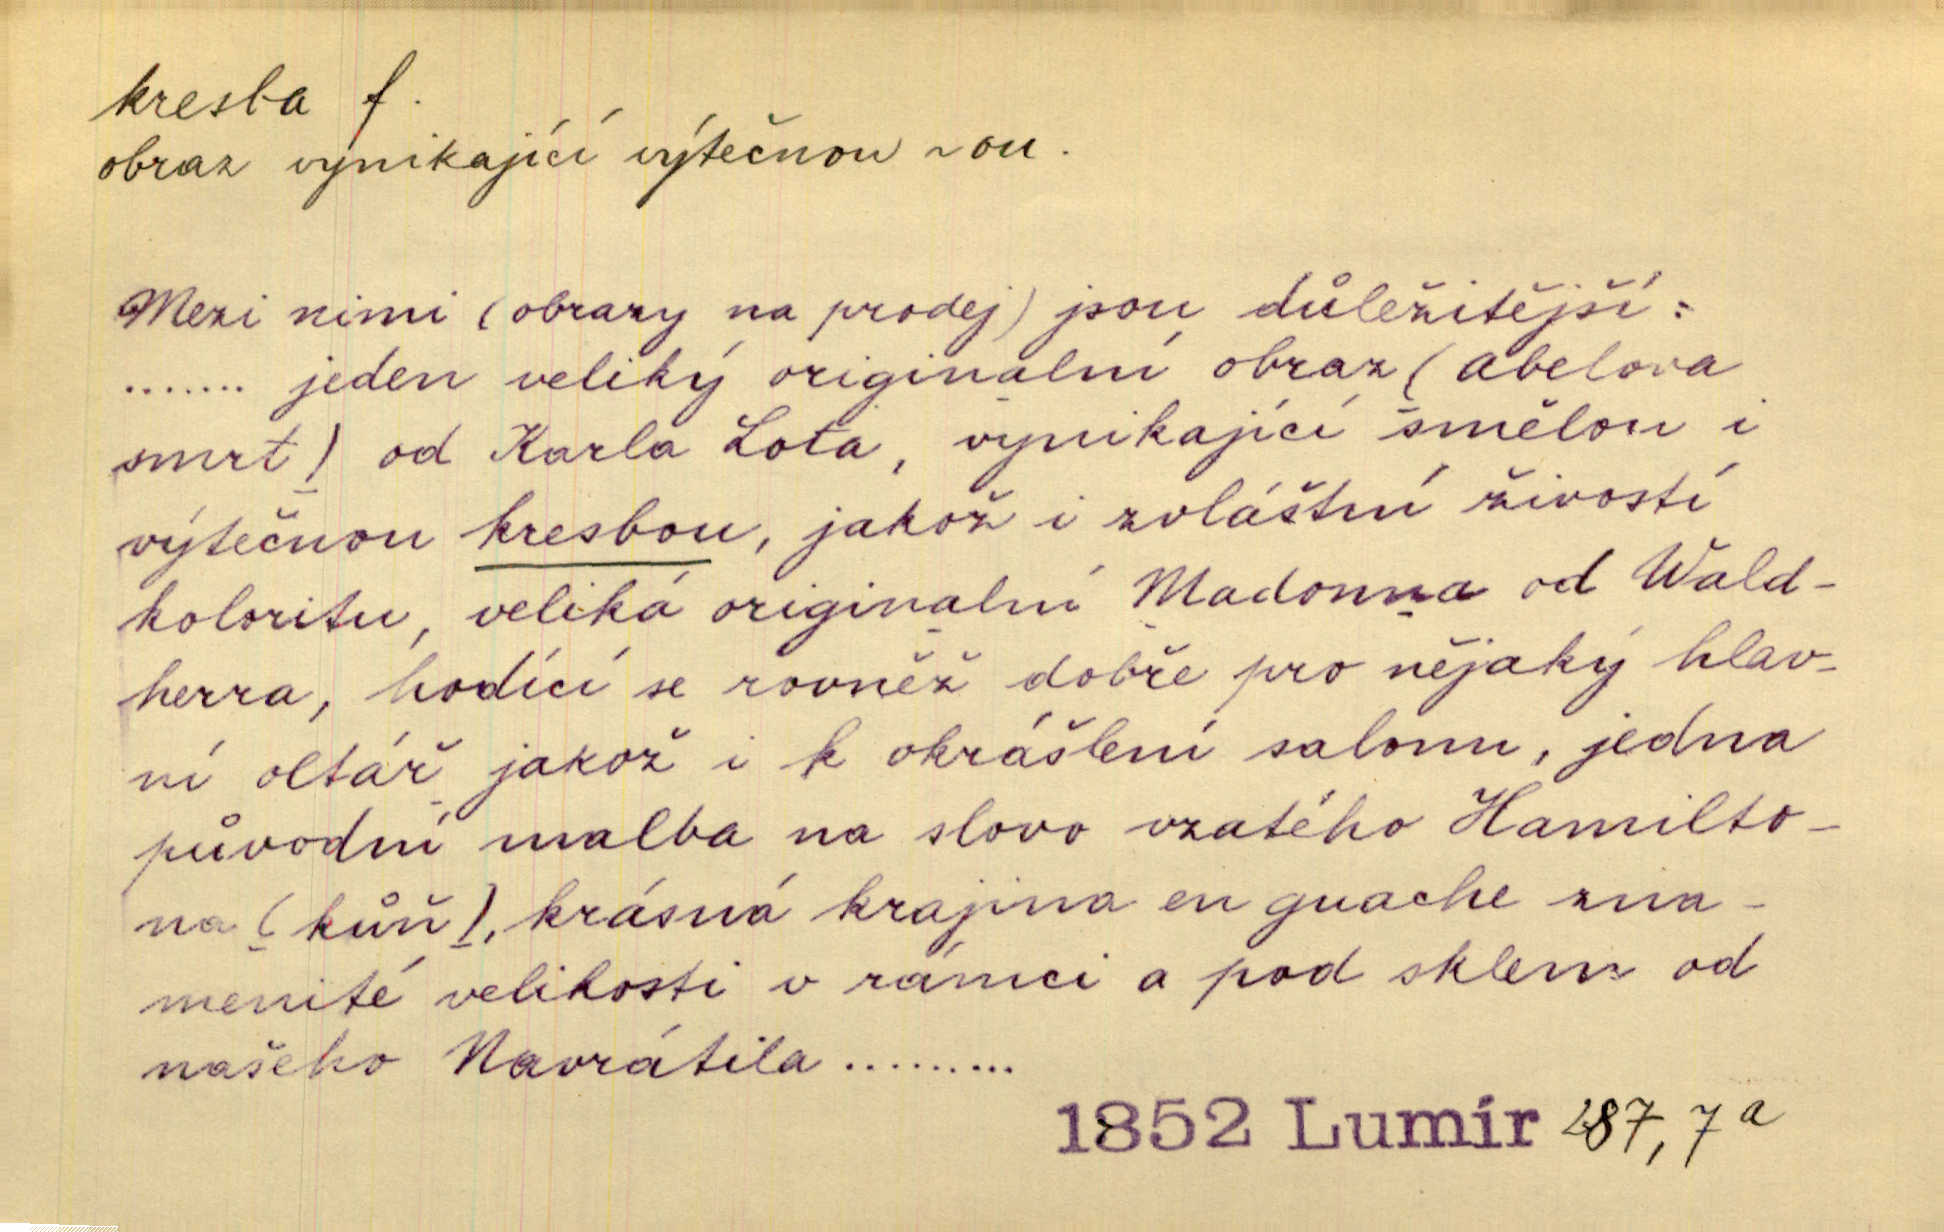 kresba f.
obraz vynikající výtečnou ~ou.
Mezi nimi (obrazy na prodej) jsou důležitější:
....... jeden veliký originalní obraz (Abelova
smrt) od Karla Lota, vynikající smělou i
výtečnou kresbou, jakož i zvláštní živostí
koloritu, veliká originalní Madonna od Wald-
herra, hodící se rovněž dobře pro nějaký hlav-
ní oltář jakož i k okrášlení salonu, jedna
původní malba na slovo vzatého Hamilto-
na (kůň), krásná krajina en guache zna-
menité velikosti v rámci a pod sklem od
našeho Navrátila .........
1852 Lumír 287, 7a